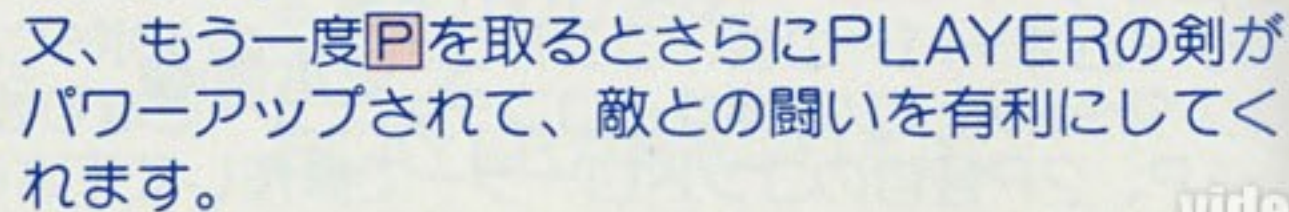 又、もう一度Pを取るとさらにPLAYERの剣が
パワーアップされて、敵との闘いを有利にしてく
れます。